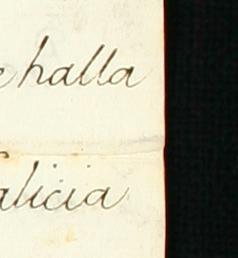 e halla
alicia